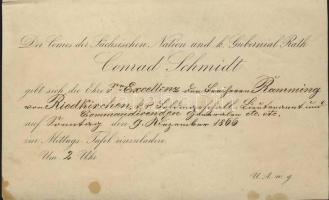 Der Comes der Sächsischen Nation und k. Gubernial Rath
Conrad Schmidt
gibt sich die Ehre Sr Excellenz den Freiherrn Ramming
von Riedkirchen, k. k. Feldmarschall Lieutenant und
Commandirenden Generalen etc. etc.
auf Sonntag den 9. Dezember 1866
zur Mittags-Tafel einzuladen.
Um 2 Uhr
U. A. w. g